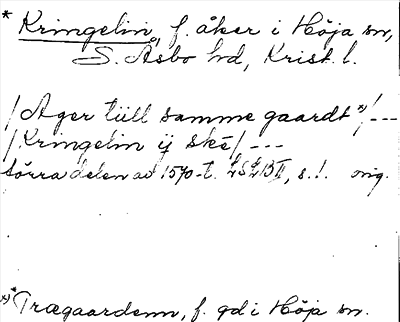 * Kringelin, f. åker i Höja sn,
S. Åsbo hd, Krist. l.
/Ager till samme gaardt x)/---
/Kringelin ij ske/---
södra delen av 1570-t. LSLB II, s.1. orig.
x)* Trægaardenn, f. gd i Höja sn.